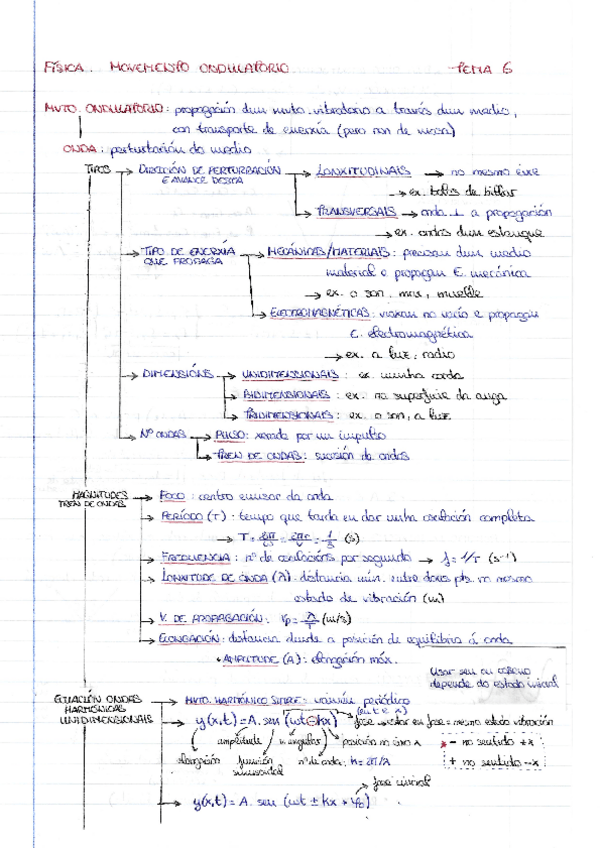 FÍSICA. MOVEMENTO ONDULATORIO TEMA 6
MVTO. ONDULATORIO: propagación dun mvto. vibratorio a través dun medio,
con transporte de enerxía (pero non de masa)
ONDA: perturbación do medio
TIPOS → DIRECCIÓN DE PERTURBACIÓN E AVANCE DESTA → LONXITUDINAIS → no mesmo eixe
→ ex. bolas de billar
→ TRANSVERSAIS → onda ⊥ a propagación
→ ex. ondas dun estanque
→ TIPO DE ENERXÍA QUE PROPAGA → MECÁNICAS/MATERIAIS: precisan dun medio
material e propagan E. mecánica
→ ex. o son, mar, muelle
→ ELECTROMAGNÉTICAS: viaxan no vacío e propagan
E. electromagnética
→ ex. a luz, radio
→ DIMENSIÓNS → UNIDIMENSIONAIS: ex. unha corda
→ BIDIMENSIONAIS: ex. na superficie da auga
→ TRIDIMENSIONAIS: ex. o son, a luz
→ Nº ONDAS → PULSO: xerada por un impulso
→ TREN DE ONDAS: sucesión de ondas
MAGNITUDES TREN DE ONDAS → FOCO: centro emisor da onda
→ PERÍODO (T): tempo que tarda en dar unha oscilación completa
→ T = = = 1/f (s)
→ FRECUENCIA: nº de oscilacións por segundo → f = 1/T (s⁻¹)
→ LONXITUDE DE ONDA (λ): distancia mín. entre dous pts. no mesmo
estado de vibración (m)
→ V. DE PROPAGACIÓN: vp = λ/T (m/s)
→ ELONGACIÓN: distancia dende a posición de equilibrio á onda
• AMPLITUDE (A): elongación máx.
Usar sen ou coseno
depende do estado inicial
ECUACIÓN ONDAS HARMÓNICAS UNIDIMENSIONAIS → MVTO. HARMÓNICO SIMPLE = vaivén periódico
(en t e x)
→ y(x,t) = A. sen (ωt ⊖ kx) fase → estar en fase = mesmo estado vibración
amplitude v. angular posición no eixo x * – no sentido +x
elongación función sinusoidal nº de onda: k = 2π/λ + no sentido –x
fase inicial
→ y(x,t) = A. sen (ωt ± kx + φ₀)